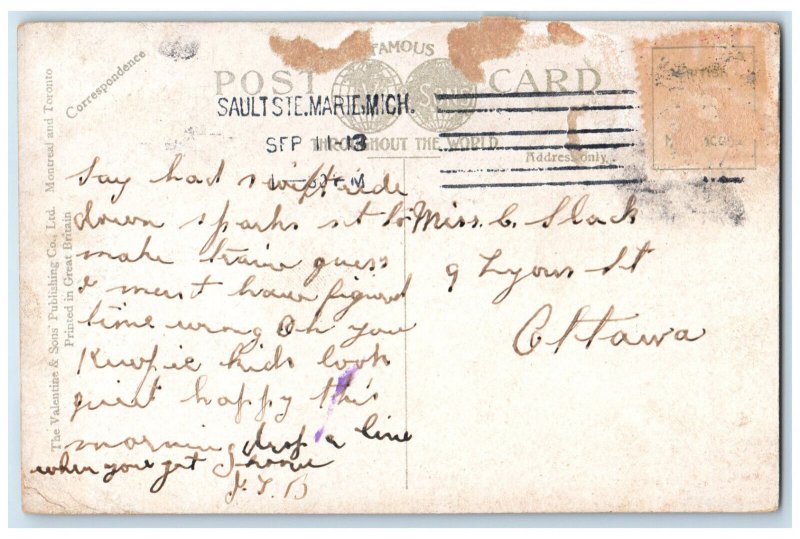 Correspondence
FAMOUS
POST CARD
SONS
SAULT STE. MARIE, MICH.
SEP 11 13
THROUGHOUT THE WORLD
Address only.
The Valentine & Sons' Publishing Co., Ltd. Montreal and Toronto
Printed in Great Britain
Say had swift ride
down sparks st to
make train guess
I must have figured
time wrong Oh you
Kewpie kids look
quiet happy this
morning drop a line
when you get home
Miss. C. Slack
9 Lyons St
Ottawa